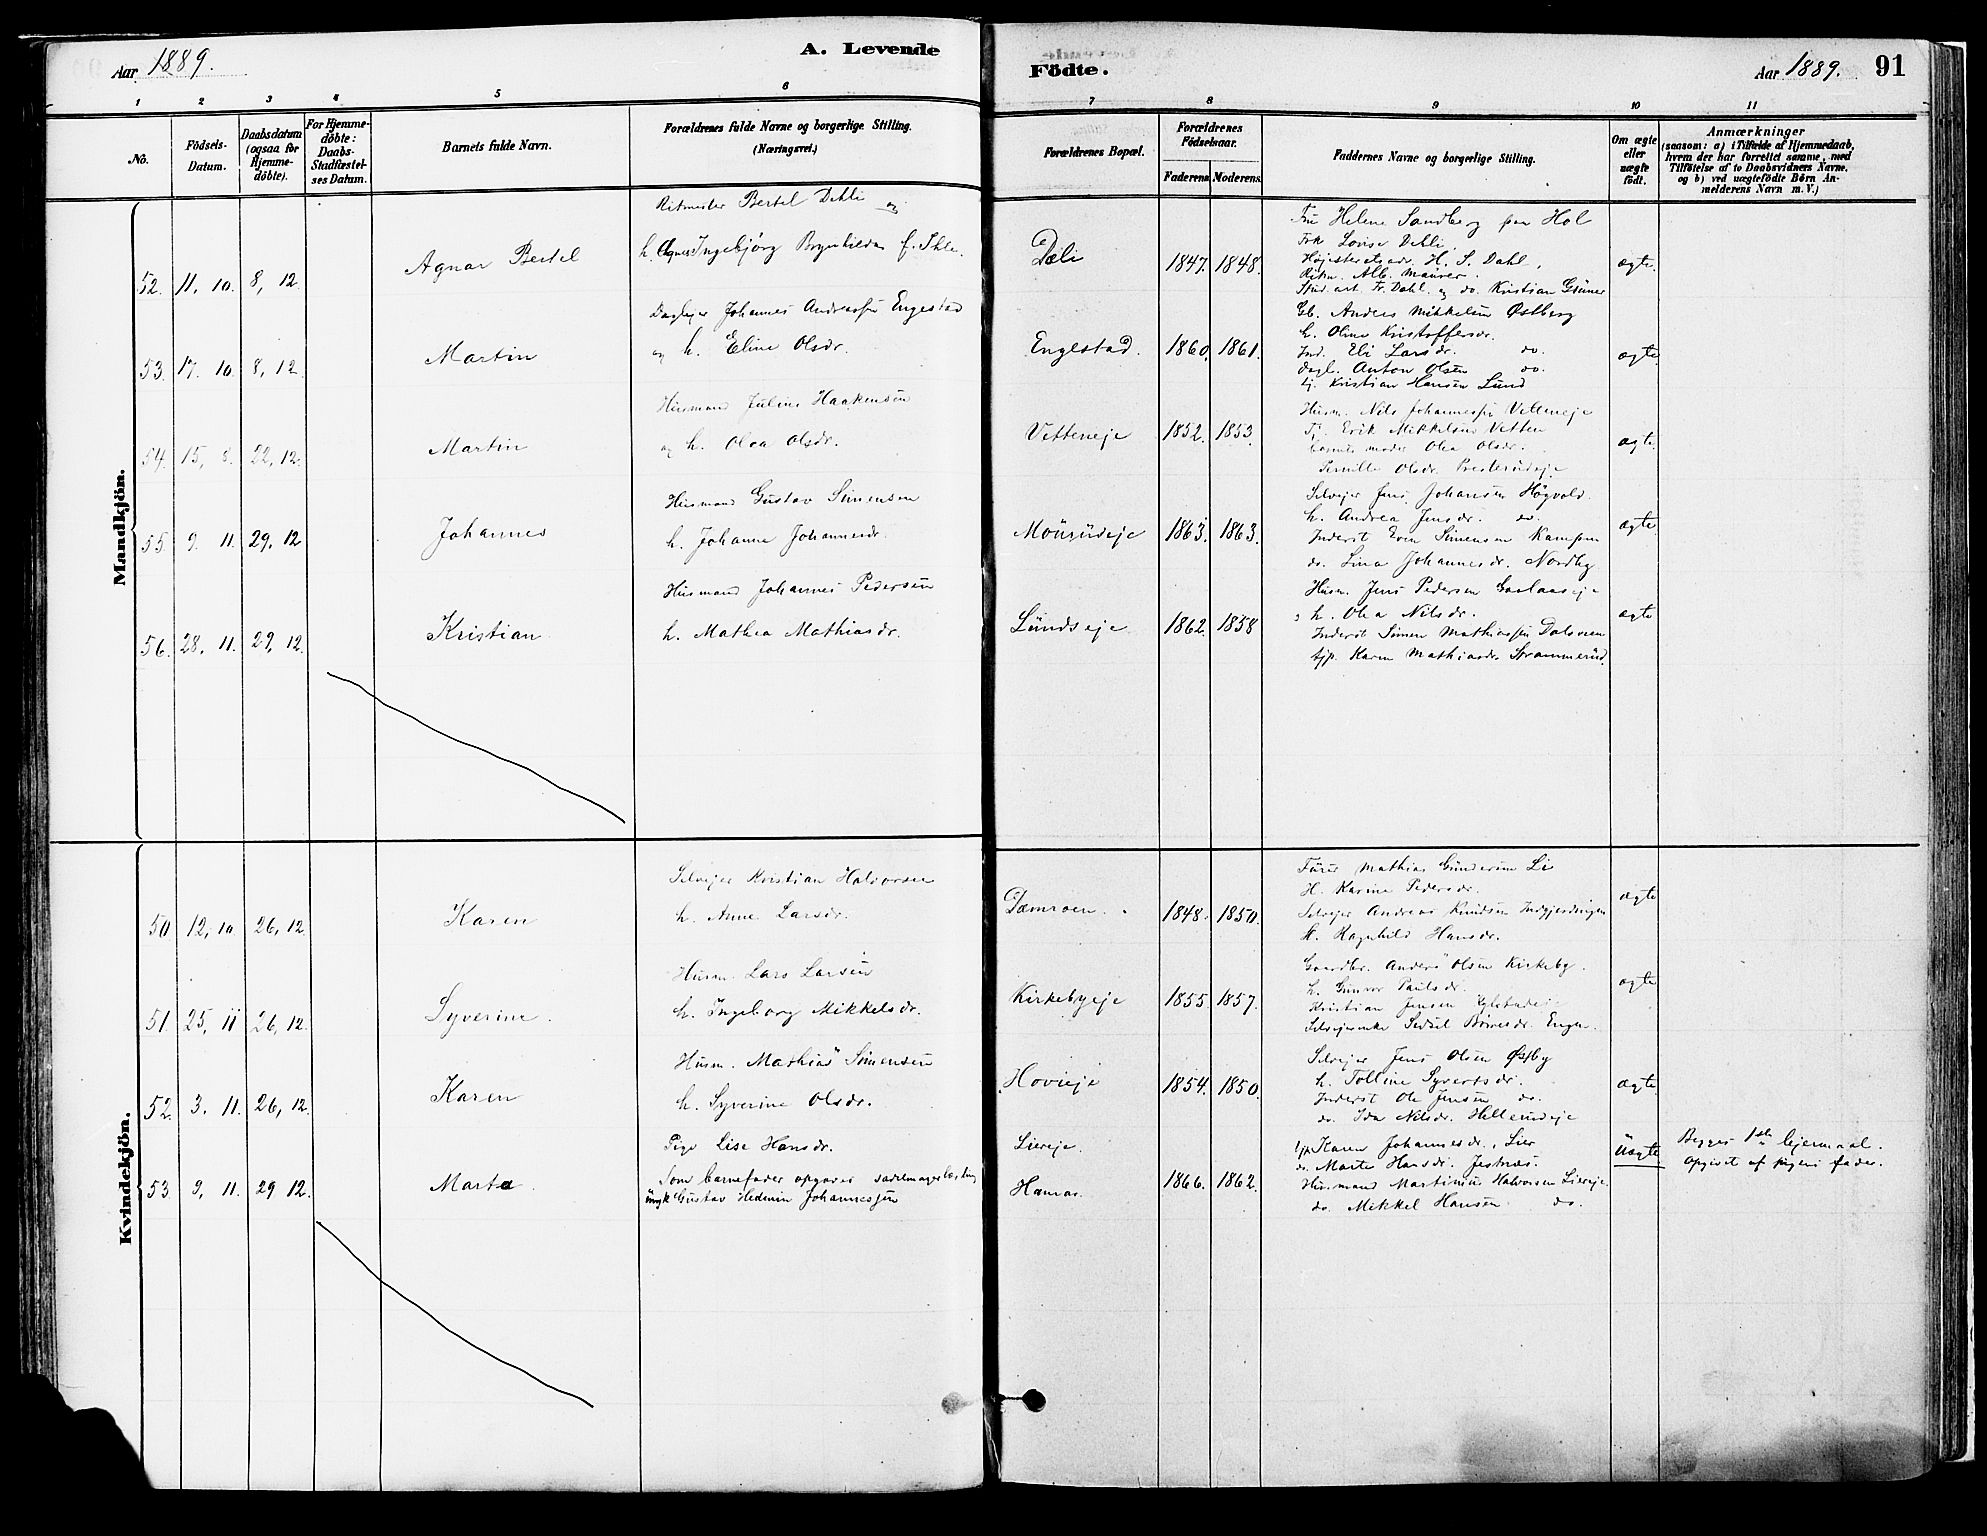 Aar 1889.
A. Levende
Födte.
Aar 1889.
91
1 2 3 4 5 6 7 8 9 10 11
No.
Födsels-Datum.
Daabsdatum (ogsaa for Hjemmedöbte).
For Hjemmedöbte: Daabs-Stadfæstelses Datum.
Barnets fulde Navn.
Forældrenes fulde Navne og borgerlige Stilling.
(Næringsvei.)
Forældrenes Bopæl.
Forældrenes Födselsaar.
Faderens. Moderens.
Faddernes Navne og borgerlige Stilling.
Om ægte eller uægte födt.
Anmærkninger
(saasom: a) i Tilfælde af Hjemmedaab, hvem der har forrettet samme, med Tilföielse af to Daabsvidners Navne. og b) ved uægtefödte Börn Anmelderens Navn m. V.)
Mandkjön.
52. 11, 10. 8, 12. Agnar Bertel
Ritmester Bertel Dehli og
h. Agnes Ingebjörg Brynhilda f.
Dæli 1847. 1848.
Fru Helene Sandberg paa Hol
Frk Lovise Dehli,
Højesteretsadv. H. S. Dahl,
Ritm. Alb. Maurer.
Stud. art. Fr. Dahl. og do. Kristian Grüner
ægte.
53. 17. 10. 8, 12. Martin
Daglejer Johannes Andreassen Engestad
og h. Eline Olsdr.
Engestad. 1860. 1861.
Gb. Anders Mikkelsen Østberg
h. Oline Kristoffersdr.
Ind. Eli Larsdr. do.
Dagl. Anton Olsen do.
tj. Kristian Hansen Lund
ægte
54. 15, 8. 22, 12. Martin
Husmand Julius Haakensen
og h. Olea Olsdr.
Vetteneje 1852. 1853.
Husm. Nils Johannessen Vetteneje
Tj. Erik Mikkelsen Vetten
barnets moder Olea Olsdr.
Pernille Olsdr. Presterudeje
ægte.
55. 9. 11. 29, 12 Johannes
Husmand Gustav Simensen
h. Johanne Johannesdr.
Mourudeje 1863. 1863.
Selvejer Jens Johansen Høgvold.
h. Andrea Jensdr. do.
Inderst Even Simensen Kampen
do. Lina Johannesdr. Nordby
ægte
56. 28, 11. 29, 12. Kristian
Husmand Johannes Pedersen
h. Mathea Mathiasdr.
Lundseje 1862. 1858
Husm. Jens Pedersen Gaalaaseje
h. Olea Nilsdr.
Inderst Simen Mathiassen Dalsveen
tjp. Karen Mathiasdr. Strammerud.
ægte
Kvindekjön.
50 12, 10. 26, 12. Karen
Selvejer Kristian Halvorsen
h. Anne Larsdr.
Dæmroen. 1848. 1850.
Mathias Gundersen Li
H. Karine Pedersdr.
Selvejer Andreas Knudsen Indgjerdingen
H. Ragnhild Hansdr.
ægte
51. 25, 11 26, 12. Syverine.
Husm. Lars Larsen
h. Ingeborg Mikkelsdr.
Kirkebyeje 1855. 1857.
Gaardbr. Anders Olsen Kirkeby.
h. Gunvor Paulsdr.
Kristian Jensen
Selvejerenke Sidsel Børresdr. Engen.
ægte
52. 3. 11. 26, 12. Karen
Husm. Mathias Simensen
h. Syverine Olsdr.
Hovieje 1854. 1850.
Selvejer Jens Olsen Østby
h. Tolline Syvertsdr.
Inderst Ole Jensen do.
do. Ida Nilsdr. Hellerudeje
ægte
53. 9, 11. 29 12. Marta.
Pige Lise Hansdr.
Som barnefader opgives sadelmagerlærling
ungk Gustav Hedenin Johannessen
Liereje.
Hamar. 1866. 1862.
tjp Karen Johannesdr., Lier
do. Marte Hansdr. Jestnæs.
Husmand Martinus Halvorsen Liereje.
do. Mikkel Hansen do.
Uægte
Begges 1ste lejermaal.
Opgivet af pigens fader.